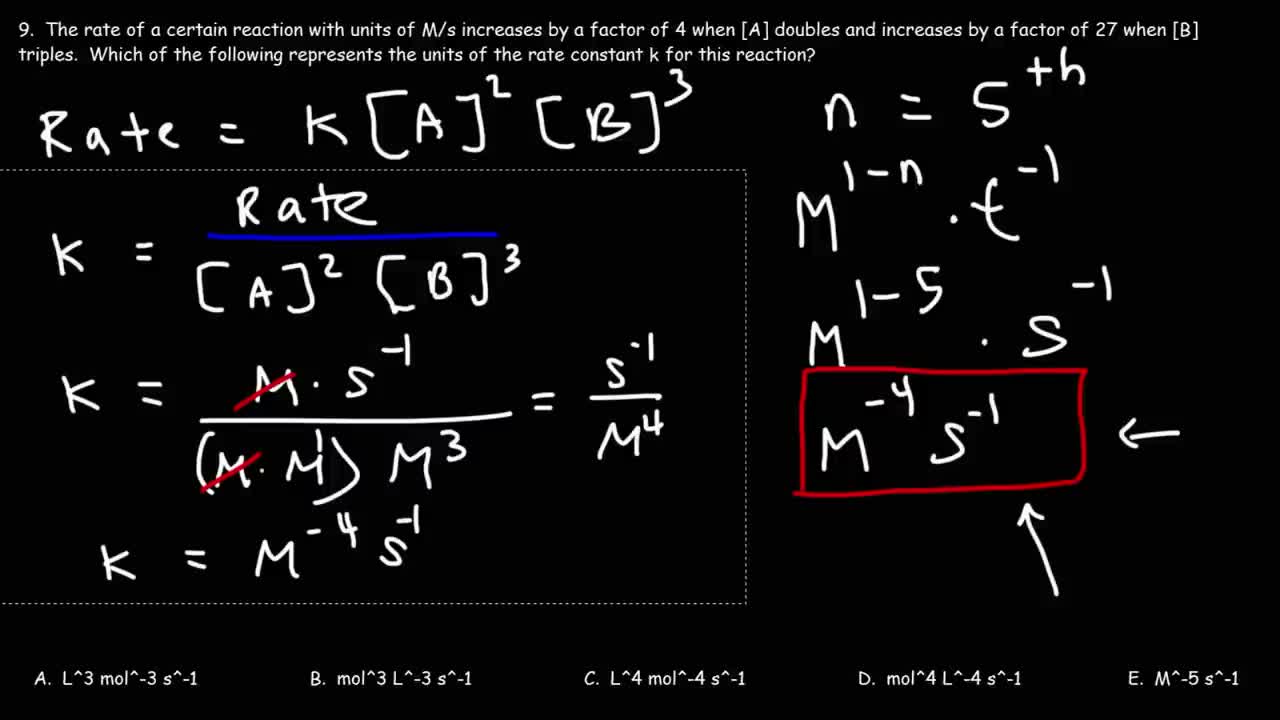 9. The rate of a certain reaction with units of M/s increases by a factor of 4 when [A] doubles and increases by a factor of 27 when [B]
triples. Which of the following represents the units of the rate constant k for this reaction?
Rate = K [A]^2 [B]^3
K = Rate / [A]^2 [B]^3
K = M · s^-1 / (M · M^1) M^3 = s^-1 / M^4
K = M^-4 s^-1
n = 5^th
M^1-n · t^-1
M^1-5 · s^-1
M^-4 s^-1 ←
A. L^3 mol^-3 s^-1 B. mol^3 L^-3 s^-1 C. L^4 mol^-4 s^-1 D. mol^4 L^-4 s^-1 E. M^-5 s^-1